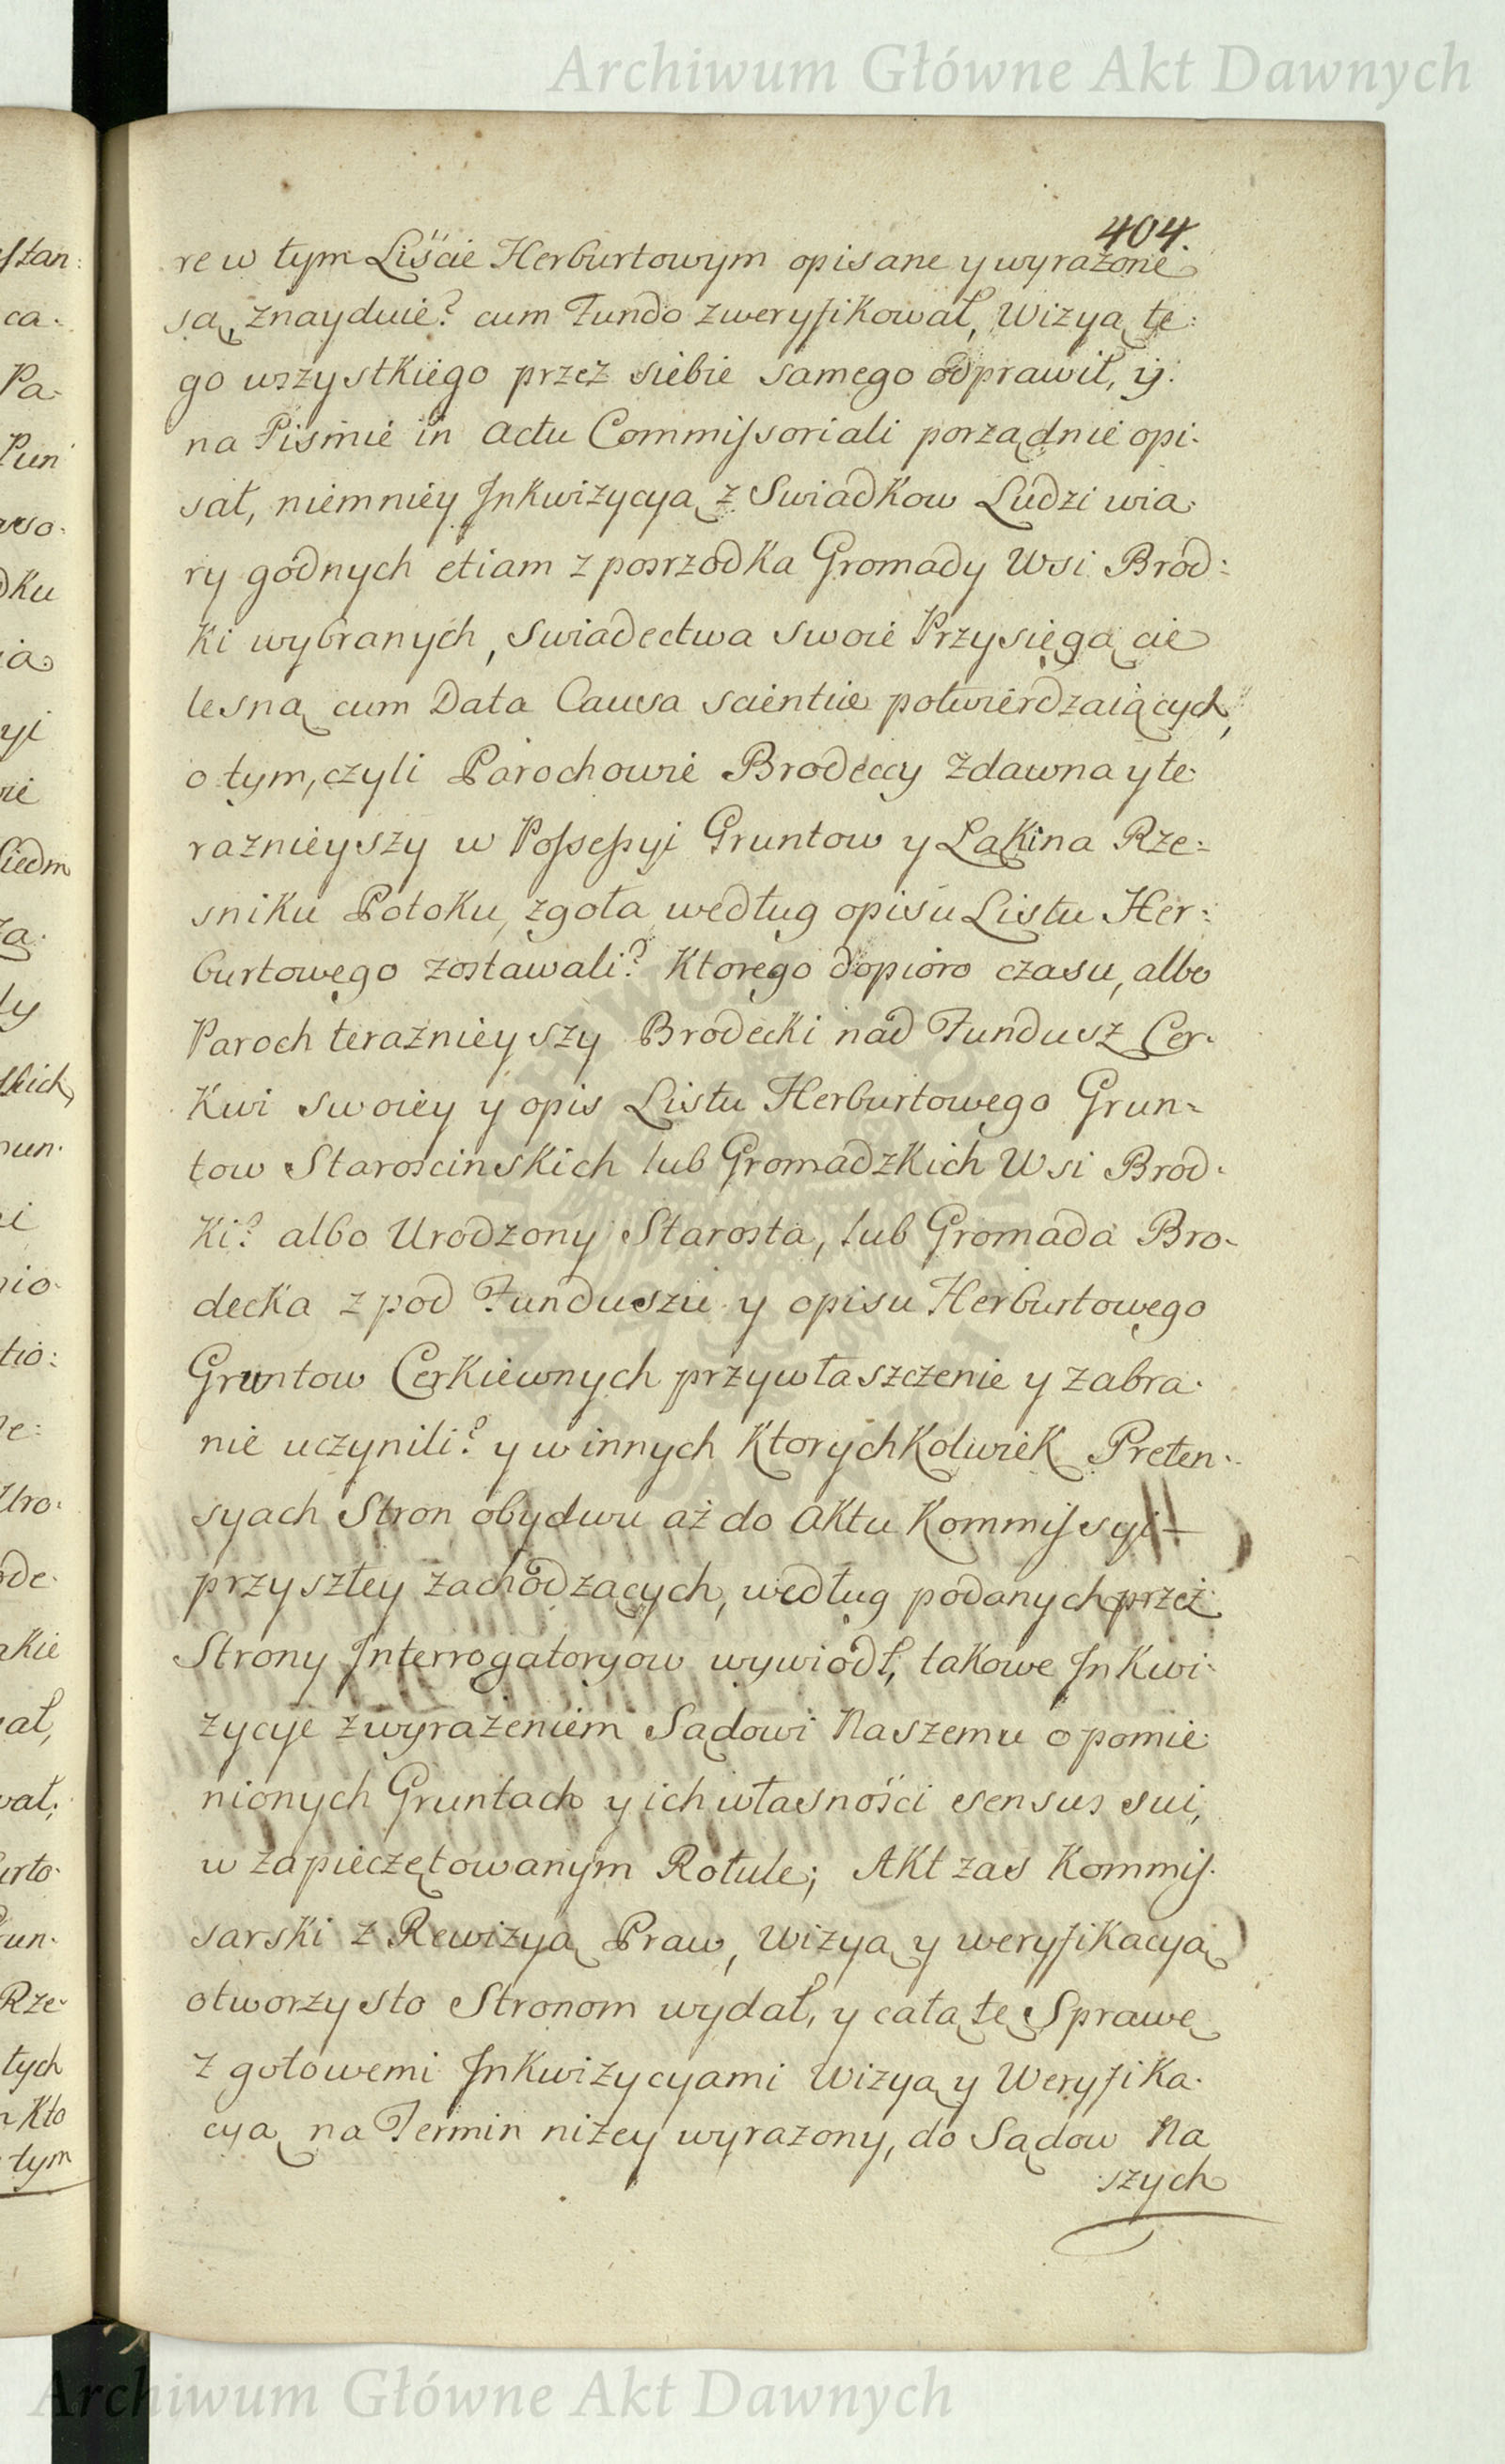 Archiwum Główne Akt Dawnych
404.
re w tym Liście Herburtowym opisane y wyrażone
są, znayduie? cum Fundo zweryfikował, Wizyą te:
go wszystkiego przez siebie samego odprawił, ij.
na Piśmie in Actu Commiſsoriali porządnie opi-
sał, niemniey Inkwizycyą z Swiadkow Ludzi wia-
ry godnych etiam z posrzodka Gromady Wsi Brod:
ki wybranych, swiadectwa swoie Przysięgą cie
lesną cum Data Causa scientiæ potwierdzaiących,
o tym, czyli Parochowie Brodeccy zdawna y te-
raznieyszy w Poſseſsyi Gruntow y Łąki na Rze-
sniku Potoku, zgoła według opisu Listu Her-
burtowego zostawali? Ktorego dopioro czasu, albo
Paroch teraznieyszy Brodecki nad Fundusz Cer-
Kwi swoiey y opis Listu Herburtowego Grun-
tow Staroscinskich lub Gromadzkich Wsi Brod-
Ki? albo Urodzony Starosta, lub Gromada Bro-
decka z pod Funduszu y opisu Herburtowego
Gruntow Cerkiewnych przywłaszczenie y zabra-
nie uczynili? y w innych Ktorychkolwiek Preten-
syach Stron obydwu aż do Aktu Kommiſsyi
przyszłey zachodzących, według podanych przez
Strony Interrogatoryow wywiodł, takowe Inkwi-
zycye z wyrażeniem Sądowi Naszemu o pomie-
nionych Gruntach y ich własności sensus sui,
w zapieczętowanym Rotule; Akt zas Kommiſ-
sarski z Rewizyą Praw, Wizyą y weryfikacyą
otworzysto Stronom wydał, y całą tę Sprawę
z gotowemi Inkwizycyami Wizyą y Weryfika-
cyą na Termin niżey wyrażony, do Sądow Na
szych
Archiwum Główne Akt Dawnych